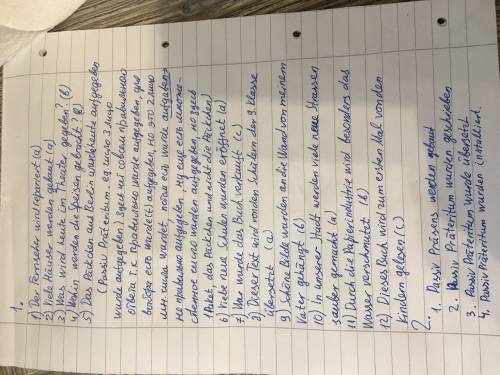 1.
1) Der Fernseher wird repariert (a)
2) Viele Häuser werden gebaut (a)
3) Was wird heute im Theater gegeben? (b)
4) Wohin werden die Speisen gebracht? (b)
5) Das Päckchen aus Berlin wurde heute aufgegeben
(Passiv Präteritum. ед число 3 лицо
wurde aufgegeben) Здесь нет совсем правильного
ответа т.к. правильно wurde aufgegeben, для
выбора есть wurde(t) aufgegeben, но это 2 лицо
мн. числа wurdet, потом есть wurde aufgaben -
не правильно aufgegeben. Ну еще есть множе-
ственное число wurden aufgegeben, но здесь
1 Paket, das Päckchen und nicht die Päckchen)
6) Viele neue Schulen wurden eröffnet (a)
7) Wo wurde das Buch verkauft (c)
8) Dieser Text wird von den Schülern der 9. Klasse
übersetzt (a)
9) Schöne Bilde wurden an die Wand von meinem
Vater gehängt (b)
10) In unserer Stadt werden viele neue Strassen
sauber gemacht (a)
11) Durch die Papierindustrie wird besonders das
Wasser verschmutzt (b)
12) Dieses Buch wird zum ersten Mal von den
Kindern gelesen (c)
2.
1. Passiv Präsens werden gebaut
2. Passiv Präteritum wurden geschrieben
3. Passiv Präteritum wurde übersetzt
4. Passiv Präteritum wurden installiert.